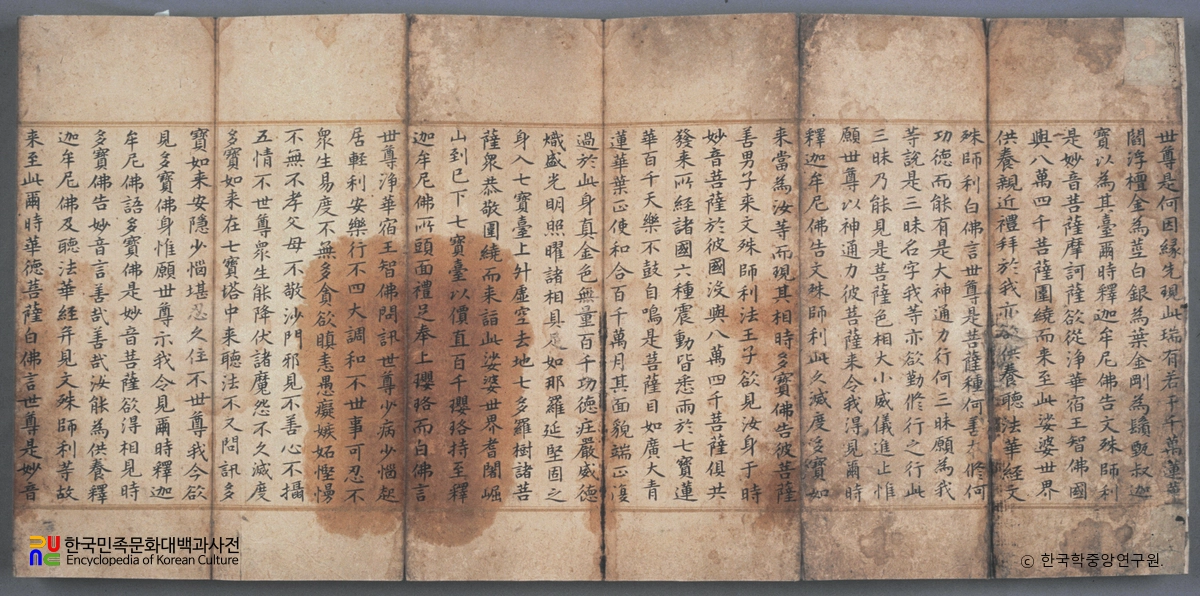 世尊是何因緣先現此瑞有若千千萬蓮華
閻浮檀金為莖白銀為葉金剛為鬚甄叔迦
寶以為其臺爾時釋迦牟尼佛告文殊師利
是妙音菩薩摩訶薩欲從淨華宿王智佛國
與八萬四千菩薩圍繞而來至此娑婆世界
供養親近禮拜於我亦欲供養聽法華經文
殊師利白佛言世尊是菩薩種何善本修何
功德而能有是大神通力行何三昧願為我
等說是三昧名字我等亦欲勤修行之行此
三昧乃能見是菩薩色相大小威儀進止惟
願世尊以神通力彼菩薩来令我得見爾時
釋迦牟尼佛告文殊師利此久滅度多寶如
来當為汝等而現其相時多寶佛告彼菩薩
善男子来文殊師利法王子欲見汝身于時
妙音菩薩於彼國没與八萬四千菩薩俱共
發来所經諸國六種震動皆悉雨於七寶蓮
華百千天樂不鼓自鳴是菩薩目如廣大青
蓮華葉正使和合百千萬月其面貌端正復
過於此身真金色無量百千功德莊嚴威德
熾盛光明照曜諸相具足如那羅延堅固之
身入七寶臺上升虛空去地七多羅樹諸菩
薩衆恭敬圍繞而来詣此娑婆世界耆闍崛
山到已下七寶臺以價直百千瓔珞持至釋
迦牟尼佛所頭面禮足奉上瓔珞而白佛言
世尊淨華宿王智佛問訊世尊少病少惱起
居輕利安樂行不四大調和不世事可忍不
衆生易度不無多貪欲瞋恚愚癡嫉妬慳慢
不無不孝父母不敬沙門邪見不善心不攝
五情不世尊衆生能降伏諸魔怨不久滅度
多寶如来在七寶塔中来聽法不又問訊多
寶如来安隱少惱堪忍久住不世尊我今欲
見多寶佛身惟願世尊示我令見爾時釋迦
牟尼佛語多寶佛是妙音菩薩欲得相見時
多寶佛告妙音言善哉善哉汝能為供養釋
迦牟尼佛及聽法華經并見文殊師利等故
来至此爾時華德菩薩白佛言世尊是妙音
한국민족문화대백과사전
Encyclopedia of Korean Culture
ⓒ 한국학중앙연구원.